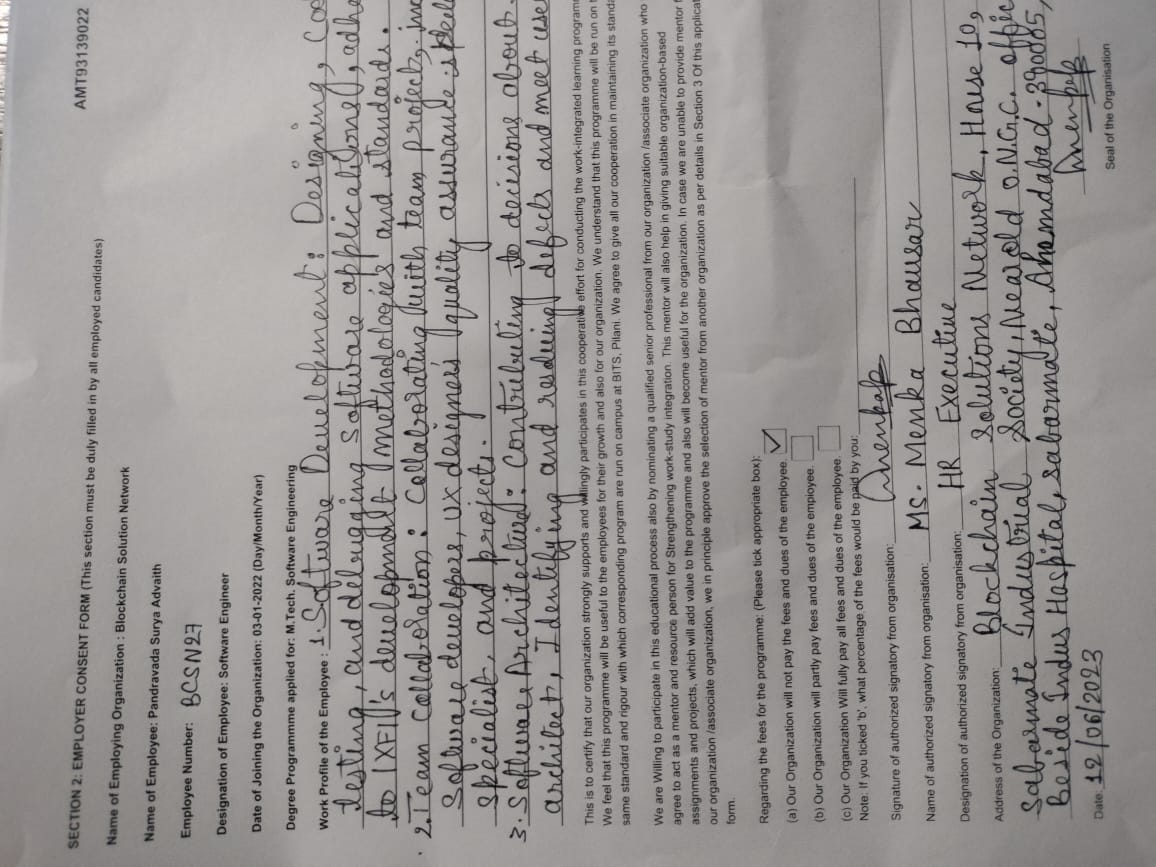 AMT93139022
SECTION 2: EMPLOYER CONSENT FORM (This section must be duly filled in by all employed candidates)
Name of Employing Organization : Blockchain Solution Network
Name of Employee: Pandravada Surya Advaith
Employee Number: BCSN27
Designation of Employee: Software Engineer
Date of Joining the Organization: 03-01-2022 (Day/Month/Year)
Degree Programmme applied for: M.Tech. Software Engineering
Work Profile of the Employee : 1. Software Development: Designing,
testing, and debugging software applications,
to development methodologies and standards.
2. Team Collaboration: Collaborating with team project,
Software developes, UX designers, quality assurance
specialist, and projects.
3. Software Architecture: Contributing to decisions about
architect, Identifying and resolving defects and meet use
This is to certify that our organization strongly supports and willingly participates in this cooperative effort for conducting the work-integrated learning program
We feel that this programme will be useful to the employees for their growth and also for our organization. We understand that this programme will be run on
same standard and rigour with which corresponding program are run on campus at BITS, Pilani. We agree to give all our cooperation in maintaining its standa
We are Willing to participate in this educational process also by nominating a qualified senior professional from our organization /associate organization who
agree to act as a mentor and resource person for Strengthening work-study integration. This mentor will also help in giving suitable organization-based
assignments and projects, which will add value to the programme and also will become useful for the organization. In case we are unable to provide mentor f
our organization /associate organization, we in principle approve the selection of mentor from another organization as per details in Section 3 Of this applicat
form.
Regarding the fees for the programme: (Please tick appropriate box):
(a) Our Organization will not pay the fees and dues of the employee.
(b) Our Organization will partly pay fees and dues of the employee.
(c) Our Organization Will fully pay all fees and dues of the employee.
Note: If you ticked 'b', what percentage of the fees would be paid by you:
Signature of authorized signatory from organisation: Menkap
Name of authorized signatory from organisation: MS. Menka Bhausar
Designation of authorized signatory from organisation: HR Executive
Address of the Organization: Blockchain Solutions Network, House 10,
Sabarmate Industrual Society, Nearold O.N.G.C. offic
Beside Indus Hospital, sabarmate, Ahamdabad - 380005,
Date: 12/06/2023
Menkap
Seal of the Organisation